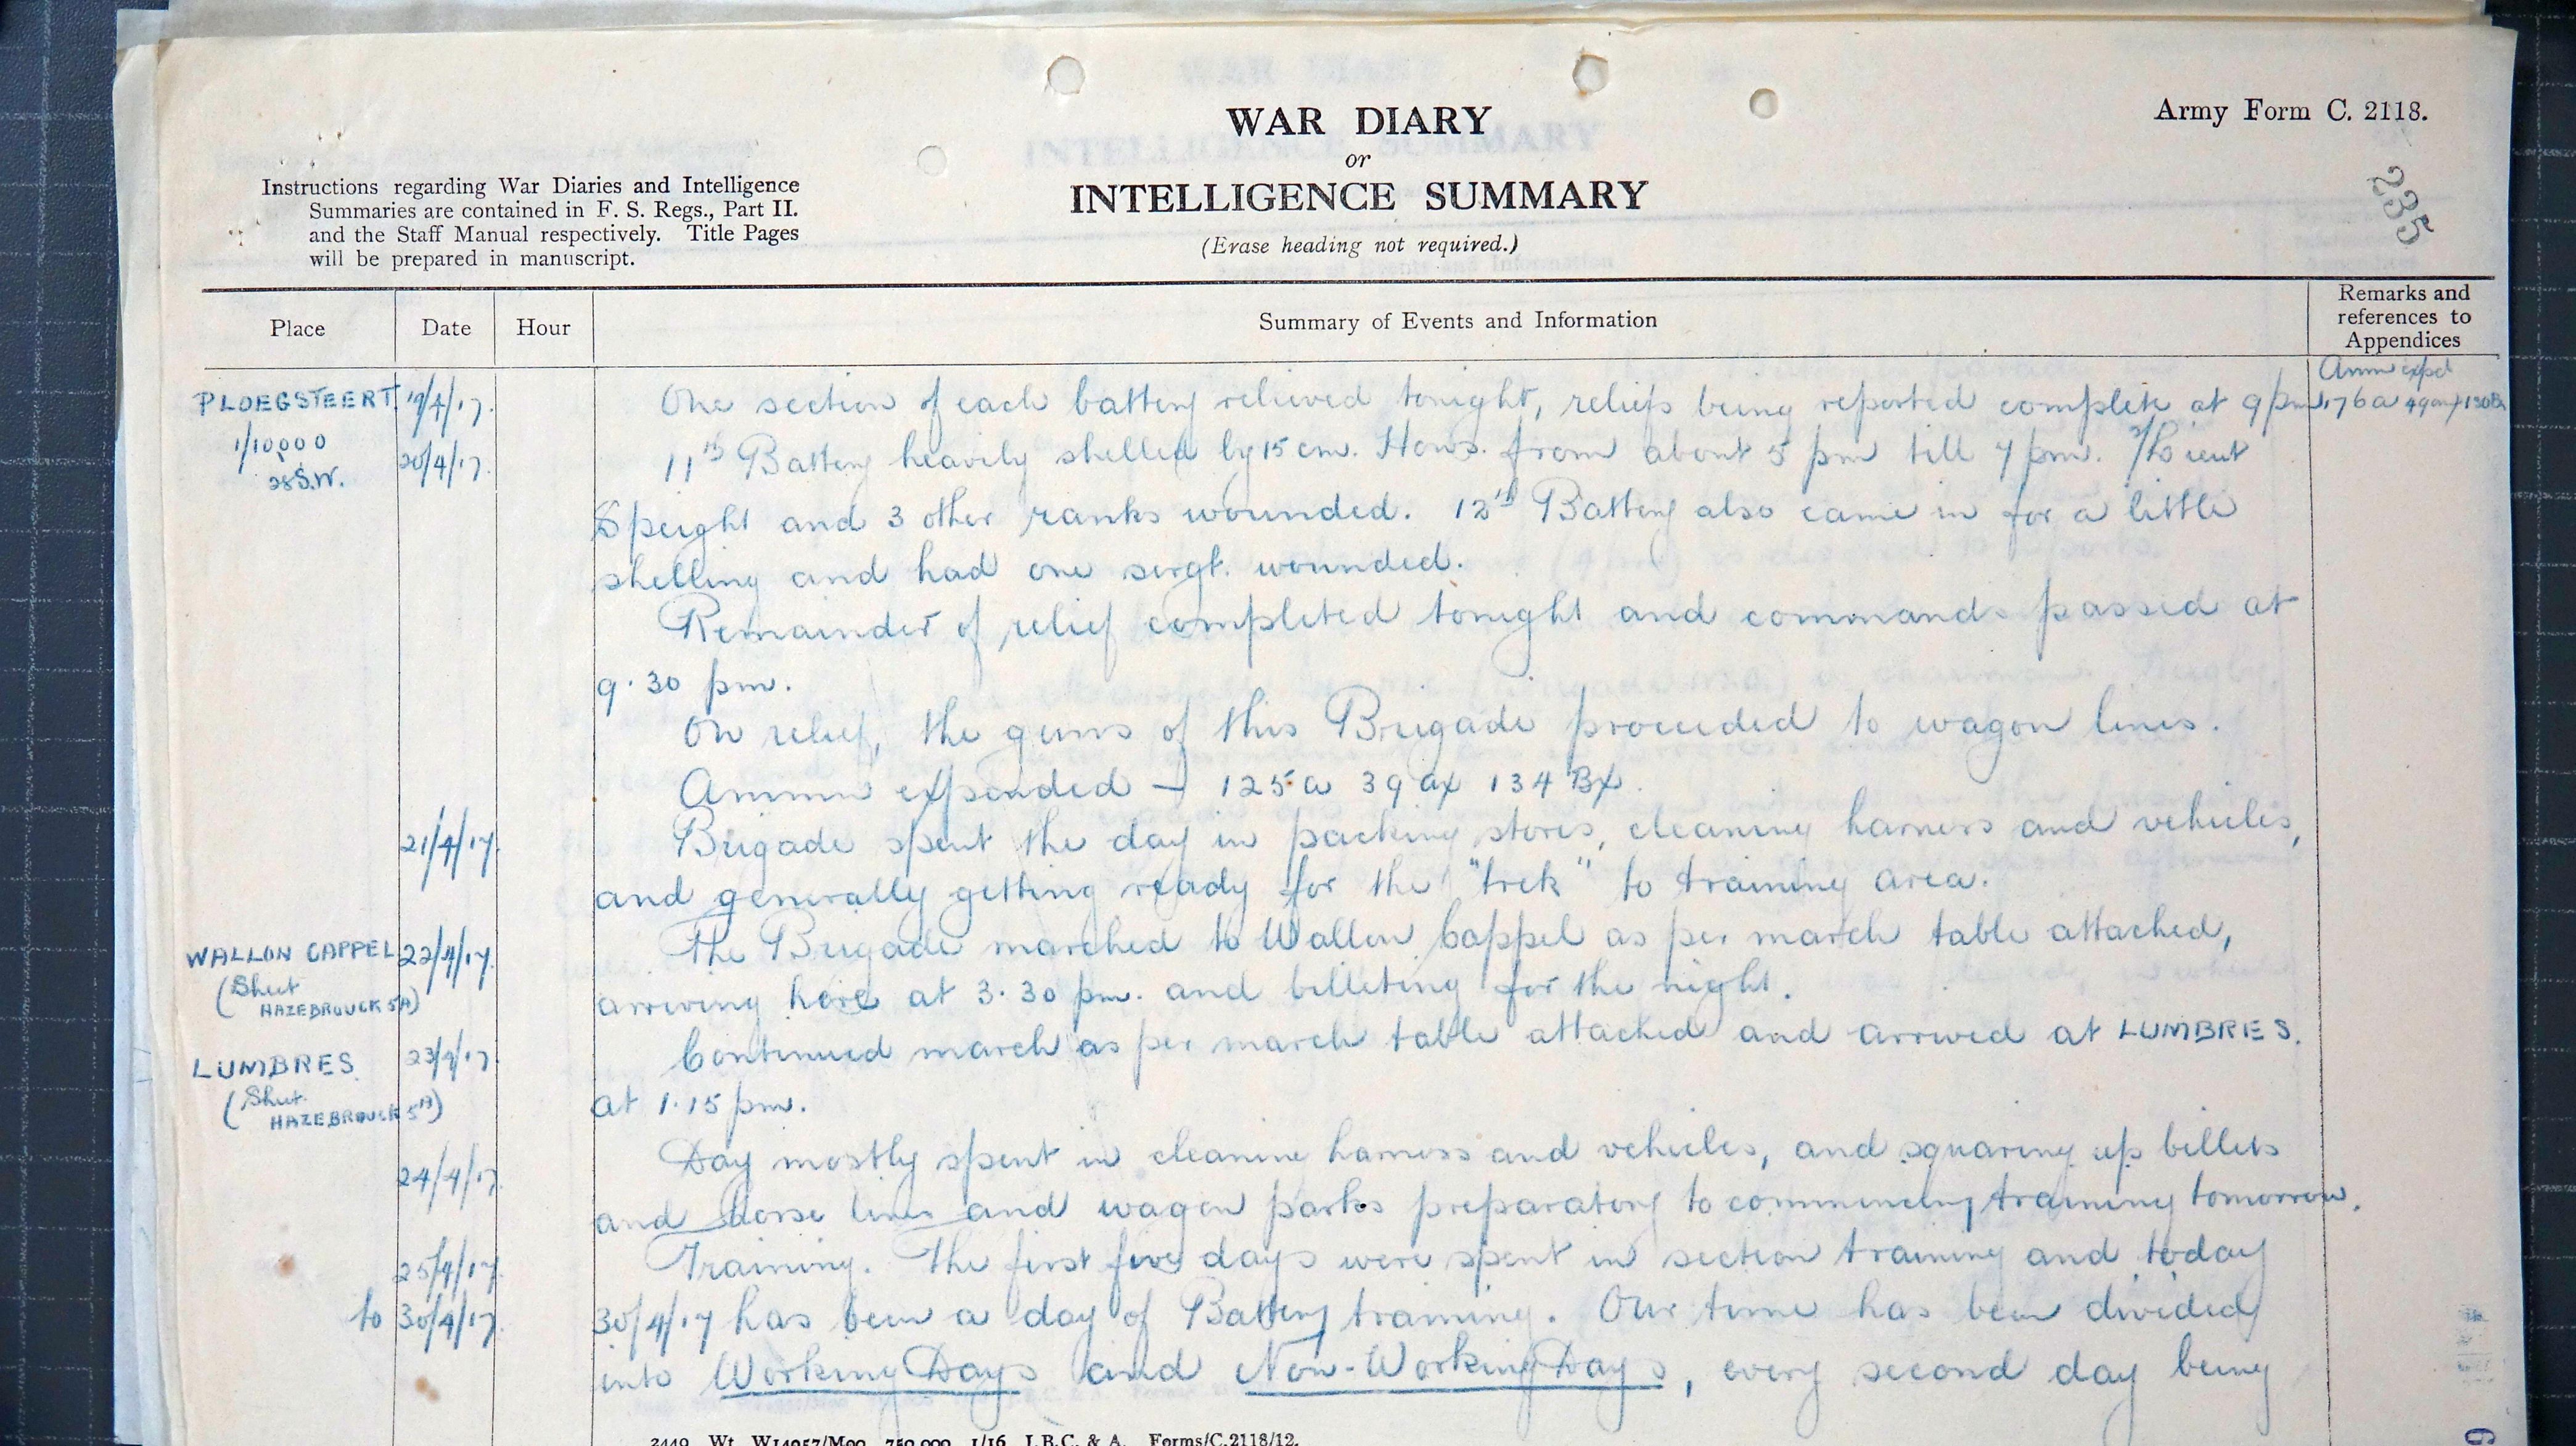 WAR DIARY
or
INTELLIGENCE SUMMARY
(Erase heading not required.)
Army Form C. 2118.
235
Instructions regarding War Diaries and Intelligence
Summaries are contained in F. S. Regs., Part II.
and the Staff Manual respectively. Title Pages
will be prepared in manuscript.
Place Date Hour Summary of Events and Information Remarks and references to Appendices
Amm expd
PLOEGSTEERT 19/4/17. One section of each battery relieved tonight, reliefs being reported complete at 9 pm 176 a 49 ax
1/10000
28 S.W. 20/4/17. 11th Battery heavily shelled by 15 cm. Hows. from about 5 pm till 7 pm. 2/Lieut
Speight and 3 other ranks wounded. 12th Battery also came in for a little
shelling and had one sergt. wounded.
Remainder of relief completed tonight and commands passed at
9.30 pm.
On relief, the guns of this Brigade proceeded to wagon lines.
Ammn expended — 125 a 39 ax 134 Bx.
21/4/17. Brigade spent the day in packing stores, cleaning harness and vehicles,
and generally getting ready for the "trek" to training area.
WALLON CAPPEL 22/4/17. The Brigade marched to Wallon Cappel as per march table attached,
(Sheet
HAZEBROUCK 5A) arriving here at 3.30 pm. and billeting for the night.
LUMBRES 23/4/17 Continued march as per march table attached and arrived at LUMBRES.
(Sheet
HAZEBROUCK 5A) at 1.15 pm.
24/4/17. Day mostly spent in cleaning harness and vehicles, and squaring up billets
and horse lines and wagon parks preparatory to commencing training tomorrow.
25/4/17. Training. The first five days were spent in section training and today
to 30/4/17. 30/4/17 has been a day of Battery training. Our time has been divided
into Working Days and Non-Working Days, every second day being
2449 Wt. W14957/M90 750,000 1/16 J.B.C. & A. Forms/C.2118/12.